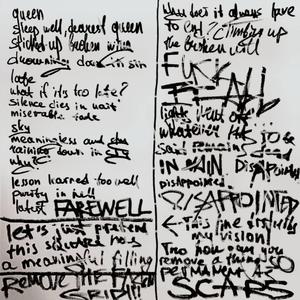 queen
sleep well, dearest queen
stitched up broken wing
drowning down in sin
late
what if it's too late?
silence dies in vain
miserable fade
sky
meaningless and
raining down in
why?
lesson learned too well
purity in hell
latest FAREWELL
let's just pretend
this square has
a meaningful filling
REMOVE THE
GRIP!!!
Why does it always have
to end? Climbing up
the broken wall
FUCK
IT ALL
light went off
whatever
said remains dead
IN VAIN. DISAPPOINTED
disappointed
DISAPPOINTED
← This line disturbs
my vision!
Two how can you
remove a thing so
PERMANENT AS
SCARS